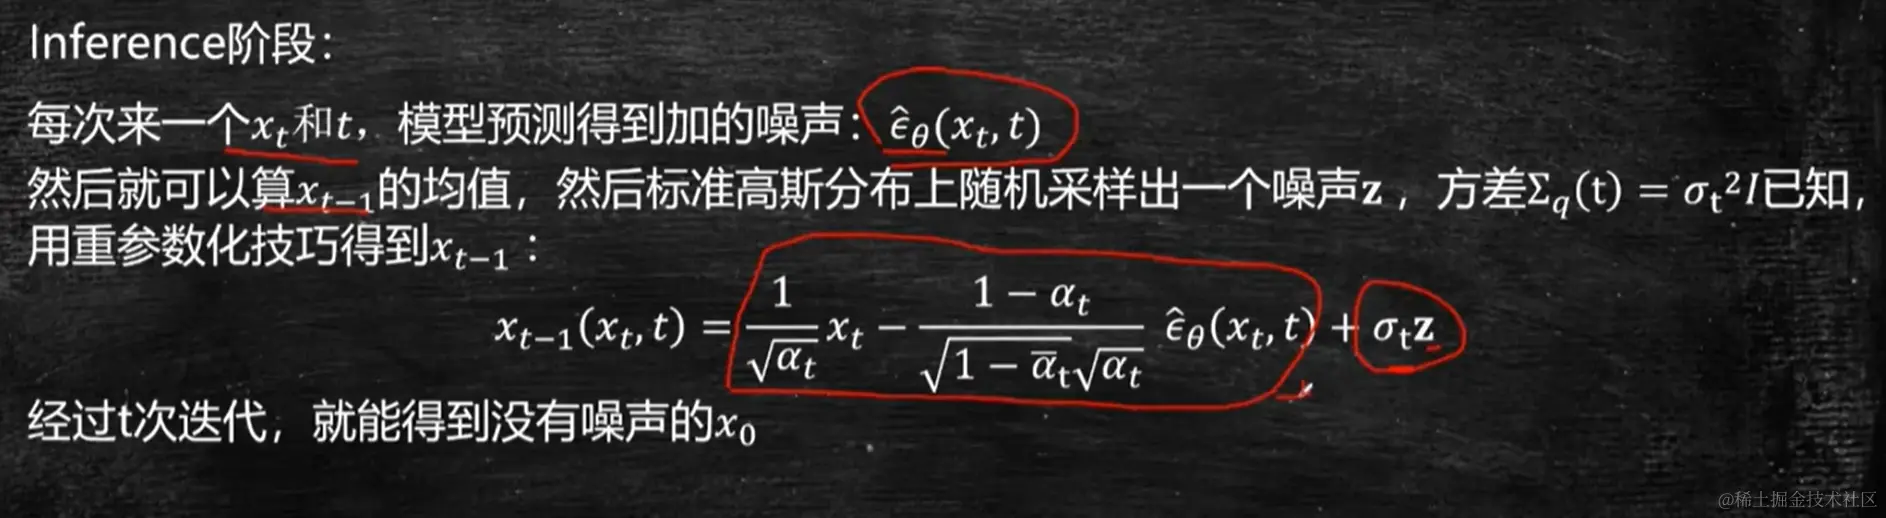 Inference阶段：
每次来一个$x_t$和$t$，模型预测得到加的噪声：$\hat{\epsilon}_\theta(x_t, t)$
然后就可以算$x_{t-1}$的均值，然后标准高斯分布上随机采样出一个噪声$\mathbf{z}$，方差$\Sigma_q(\mathrm{t}) = \sigma_\mathrm{t}^2 I$已知，
用重参数化技巧得到$x_{t-1}$：
$x_{t-1}(x_t, t) = \frac{1}{\sqrt{\alpha_t}} x_t - \frac{1 - \alpha_t}{\sqrt{1 - \overline{\alpha}_\mathrm{t}} \sqrt{\alpha_t}} \hat{\epsilon}_\theta(x_t, t) + \sigma_\mathrm{t} \mathbf{z}$
经过t次迭代，就能得到没有噪声的$x_0$
@稀土掘金技术社区